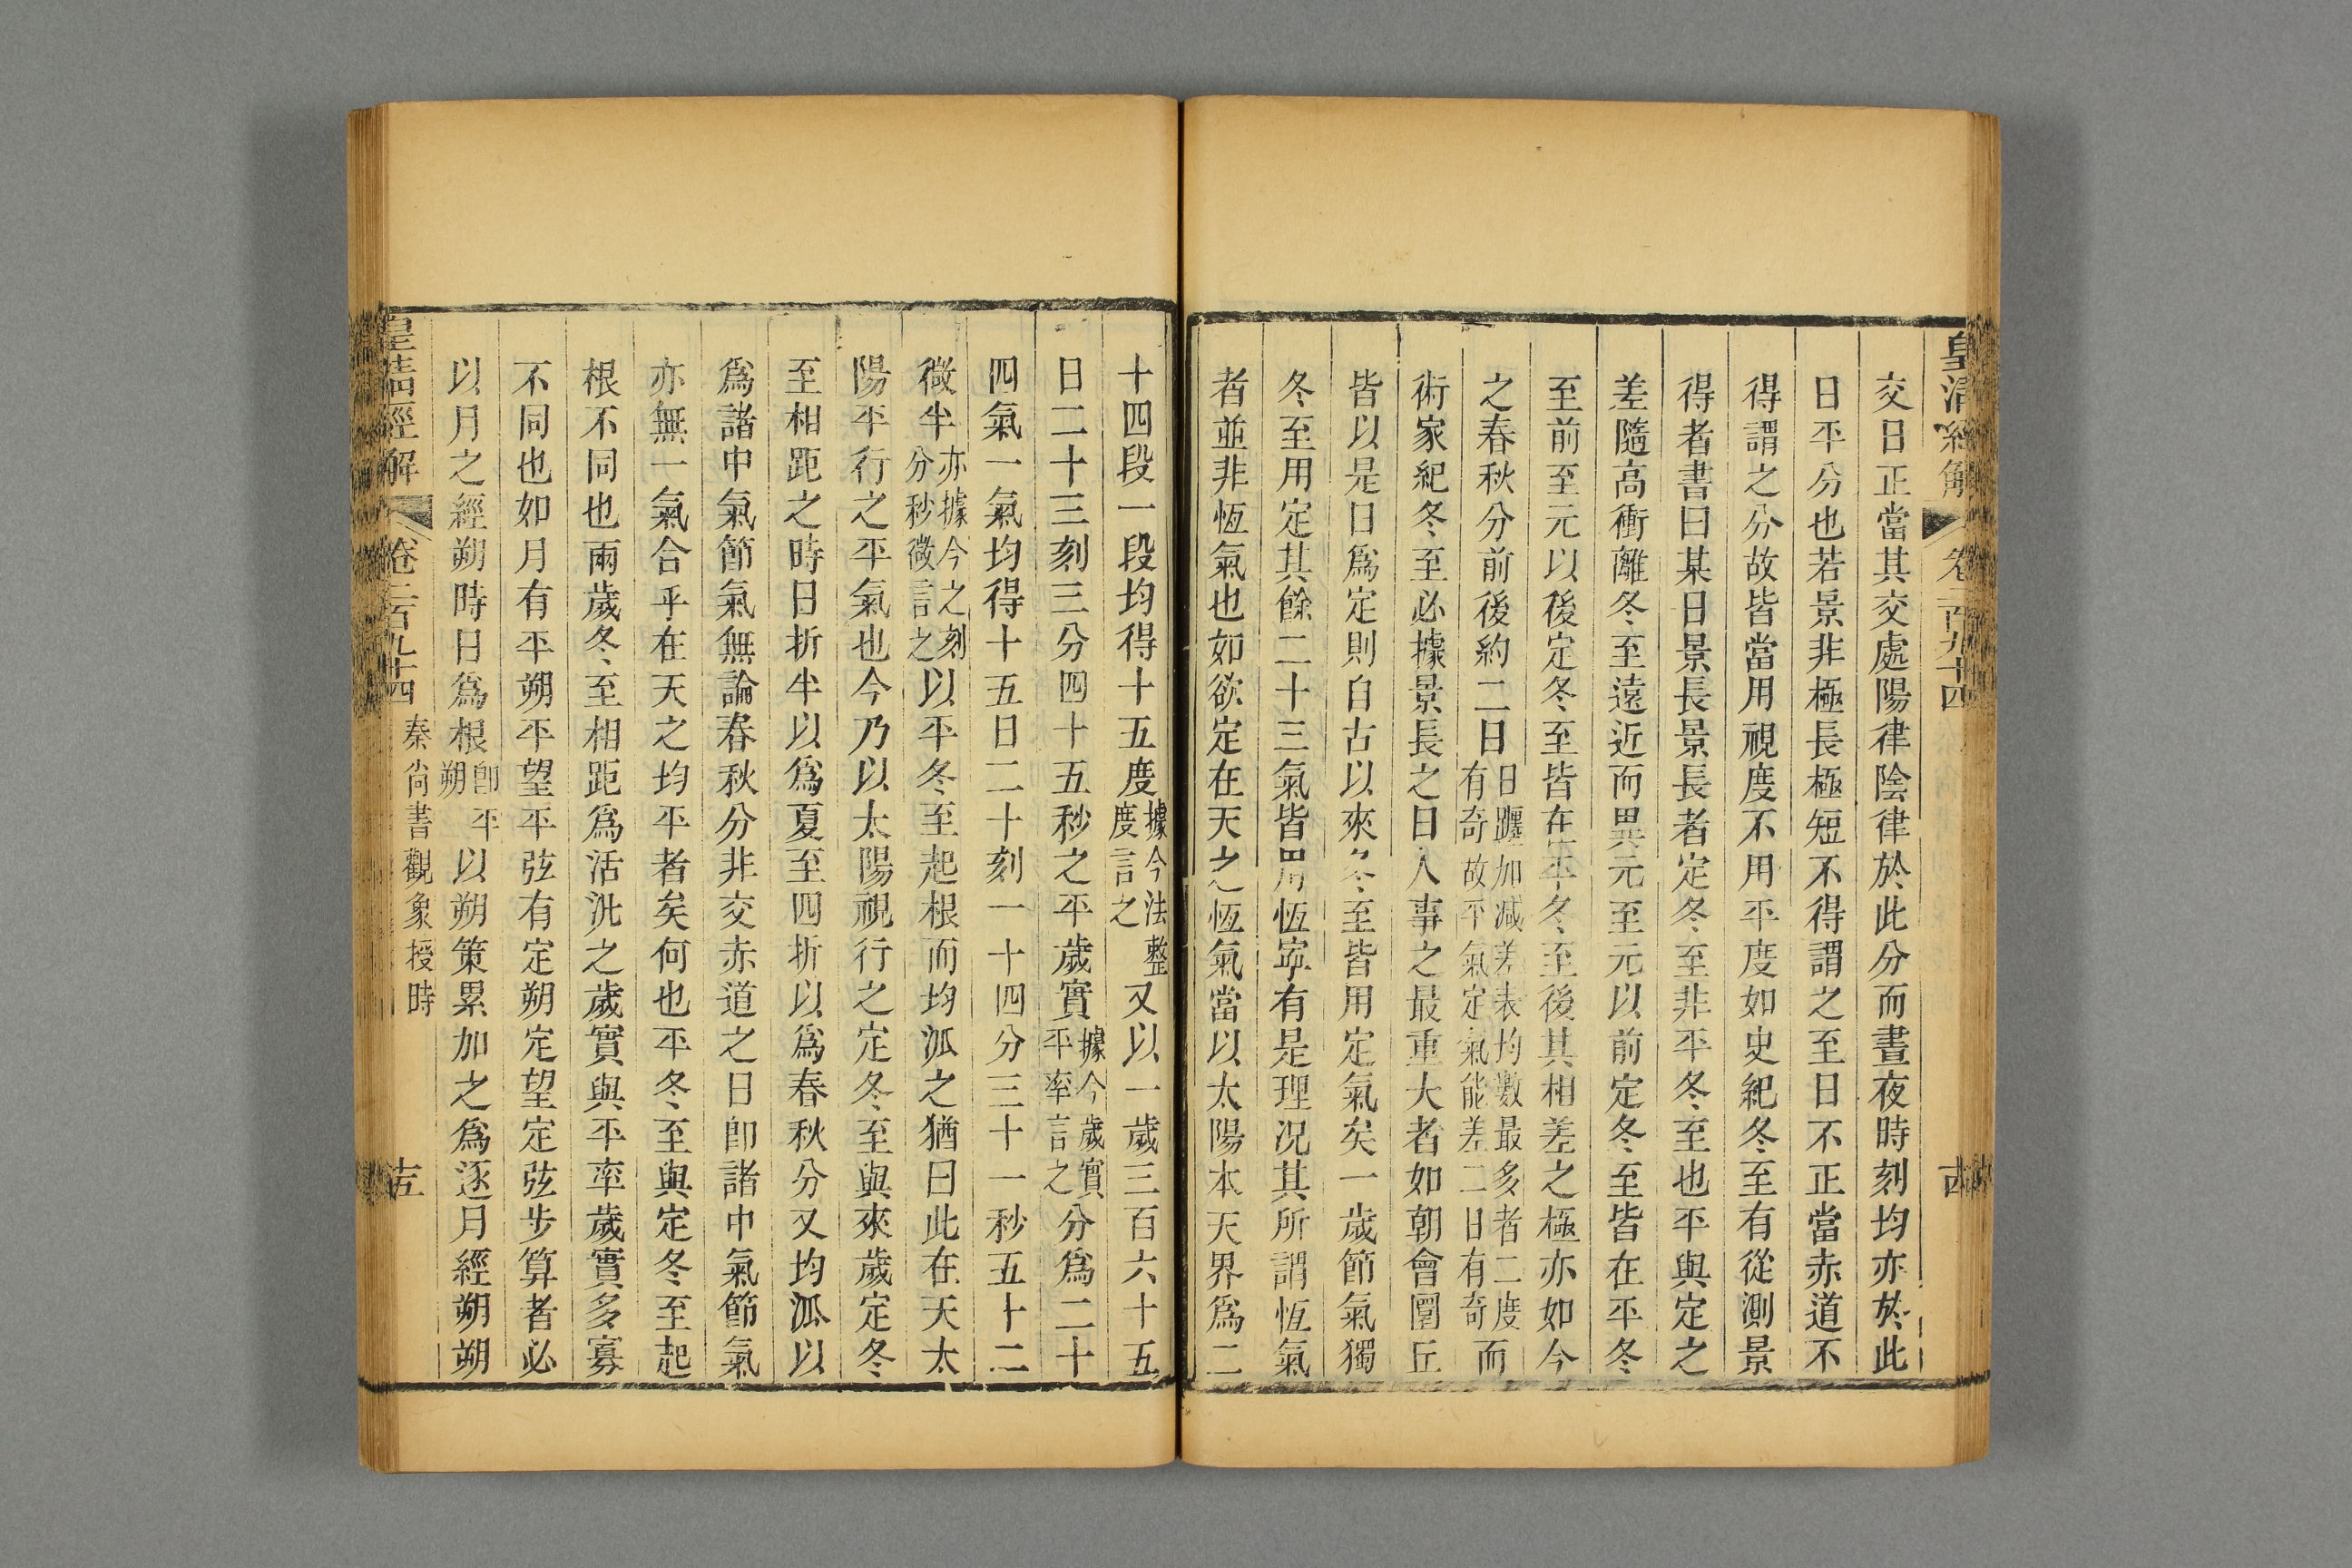 皇清經解 卷二百九十四 古
交日正當其交處陽律陰律於此分而晝夜時刻均亦於此
日平分也若景非極長極短不得謂之至日不正當赤道不
得謂之分故皆當用視度不用平度如史紀冬至有從測景
得者書曰某日景長景長者定冬至非平冬至也平與定之
差隨高衝離冬至遠近而異元至元以前定冬至皆在平冬
至前至元以後定冬至皆在平冬至後其相差之極亦如今
之春秋分前後約二日日躔加減差表均數最多者二度有奇故平氣定氣能差二日有奇而
術家紀冬至必據景長之日人事之最重大者如朝會圜丘
皆以是日爲定則自古以來冬至皆用定氣矣一歲節氣獨
冬至用定其餘二十三氣皆用恆寧有是理况其所謂恆氣
者並非恆氣也如欲定在天之恆氣當以太陽本天界爲二
十四段一段均得十五度據今法整度言之又以一歲三百六十五
日二十三刻三分四十五秒之平歲實據今歲實平率言之分爲二十
四氣一氣均得十五日二十刻一十四分三十一秒五十二
微半亦據今之刻分秒微言之以平冬至起根而均派之猶曰此在天太
陽平行之平氣也今乃以太陽視行之定冬至與來歲定冬
至相距之時日折半以爲夏至四折以爲春秋分又均派以
爲諸中氣節氣無論春秋分非交赤道之日卽諸中氣節氣
亦無一氣合乎在天之均平者矣何也平冬至與定冬至起
根不同也兩歲冬至相距爲活汎之歲實與平率歲實多寡
不同也如月有平朔平望平弦有定朔定望定弦步算者必
以月之經朔時日爲根卽平朔以朔策累加之爲逐月經朔朔
皇清經解 卷二百九十四 秦尚書觀象授時 十五